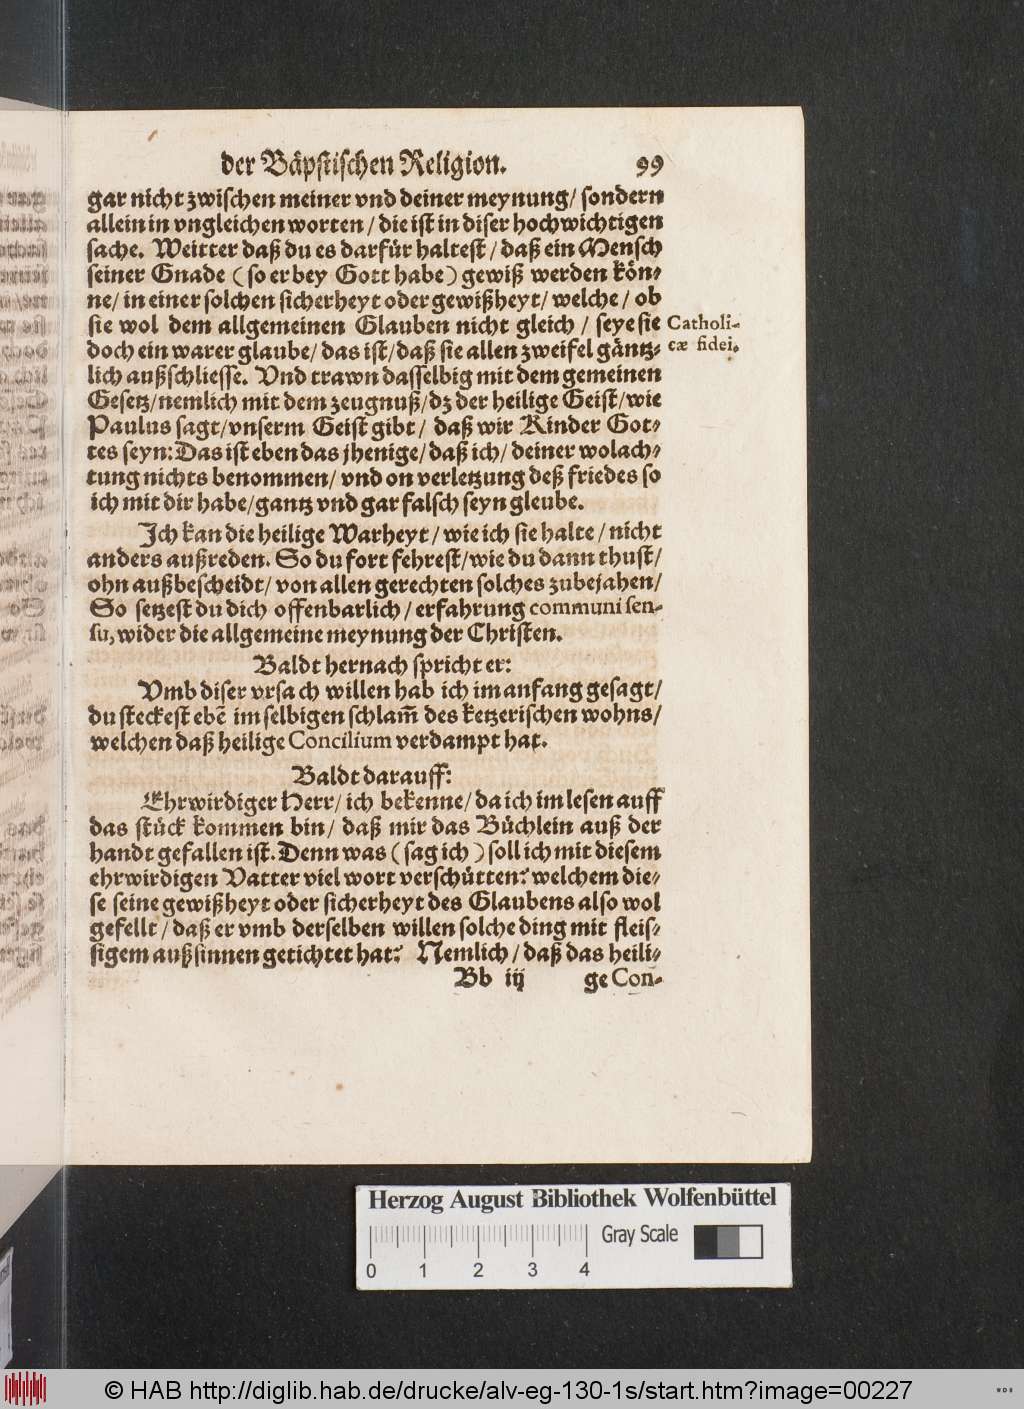 der Bäpstischen Religion. 99
gar nicht zwischen meiner vnd deiner meynung/ sondern
allein in vngleichen worten / die ist in diser hochwichtigen
sache. Weitter daß du es darfür haltest / daß ein Mensch
seiner Gnade ( so er bey Gott habe ) gewiß werden kön⸗
ne/ in einer solchen sicherheyt oder gewißheyt/ welche / ob
sie wol dem allgemeinen Glauben nicht gleich / seye sie
Catholi-
doch ein warer glaube/ das ist/ daß sie allen zweifel gäntz⸗
cæ fidei.
lich außschliesse. Vnd trawn dasselbig mit dem gemeinen
Gesetz/nemlich mit dem zeugnuß/dz der heilige Geist/wie
Paulus sagt/vnserm Geist gibt / daß wir Kinder Got⸗
tes seyn: Das ist eben das jhenige/ daß ich/ deiner wolach⸗
tung nichts benommen/ vnd on verletzung deß friedes so
ich mit dir habe/gantz vnd gar falsch seyn gleube.
Jch kan die heilige Warheyt / wie ich sie halte / nicht
anders außreden. So du fort fehrest/wie du dann thust/
ohn außbescheidt/ von allen gerechten solches zubejahen/
So setzest du dich offenbarlich / erfahrung communi sen-
su, wider die allgemeine meynung der Christen.
Baldt hernach spricht er:
Vmb diser vrsach willen hab ich im anfang gesagt/
du steckest ebẽ im selbigen schlam̃ des ketzerischen wohns/
welchen daß heilige Concilium verdampt hat.
Baldt darauff:
Ehrwirdiger Herr/ ich bekenne/ da ich im lesen auff
das stück kommen bin/ daß mir das Büchlein auß der
handt gefallen ist. Denn was ( sag ich ) soll ich mit diesem
ehrwirdigen Vatter viel wort verschütten? welchem die⸗
se seine gewißheyt oder sicherheyt des Glaubens also wol
gefellt / daß er vmb derselben willen solche ding mit fleis⸗
sigem außsinnen getichtet hat? Nemlich / daß das heili⸗
Bb iij ge Con-
Herzog August Bibliothek Wolfenbüttel
Gray Scale
0 1 2 3 4
© HAB http://diglib.hab.de/drucke/alv-eg-130-1s/start.htm?image=00227